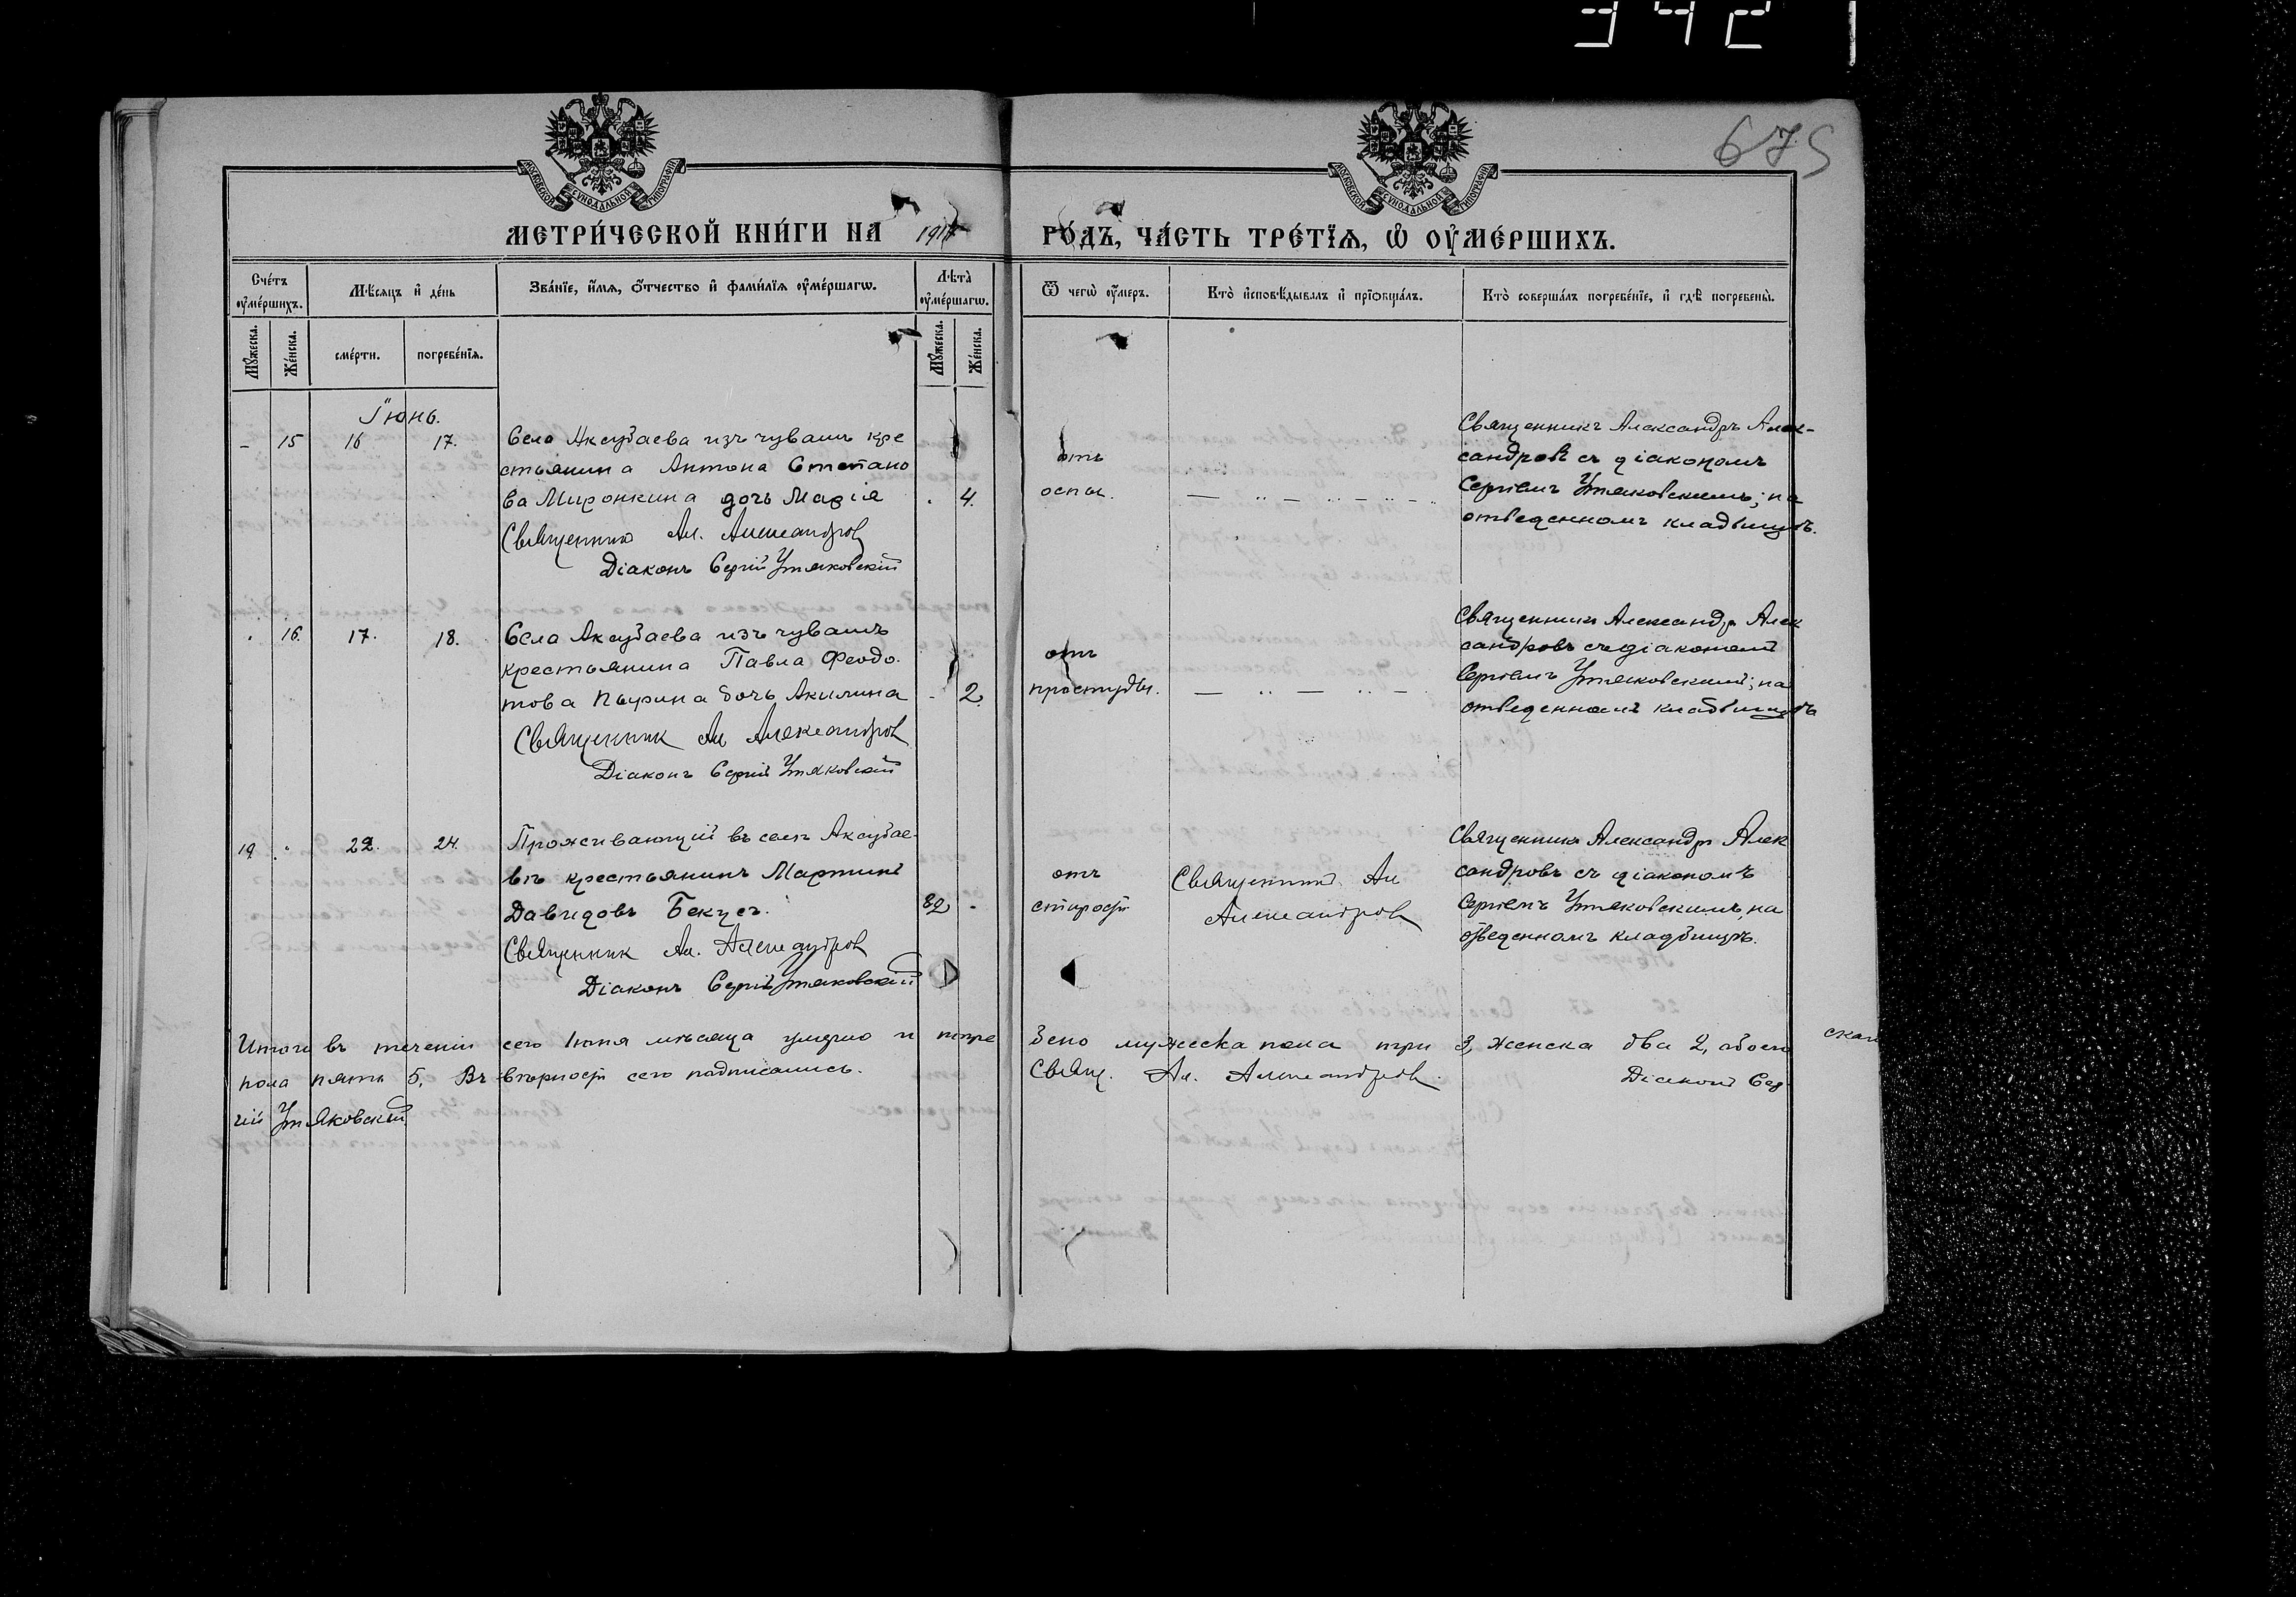 342
675
МОСКОВСКОЙ СѴНОДАЛЬНОЙ ТИПОГРАФІИ
МОСКОВСКОЙ СѴНОДАЛЬНОЙ ТИПОГРАФІИ
МЕТРИ́ЧЕСКОЙ КНИ́ГИ НА 1917 ГО́ДЪ, ЧА́СТЬ ТРЕ́ТЇѦ, Ѡ҆ ОУ҆МЕ́РШИХЪ.
Сче́тъ оу҆ме́ршихъ.
Мѣ́сѧцъ и҆ де́нь
Зва́нїе, и҆́мѧ, ѻ҆́тчество и҆ фами́лїѧ оу҆ме́ршагѡ.
Лѣ́та оу҆ме́ршагѡ.
Ѿ чегѡ̀ оу҆́меръ.
Кто̀ и҆сповѣ́дывалъ и҆ прїѡбща́лъ.
Кто̀ соверша́лъ погребе́нїе, и҆ гдѣ̀ погребены̀.
Мꙋ́жеска.
Же́нска.
сме́рти.
погребе́нїѧ.
Мꙋ́жеска.
Же́нска.
Іюнь.
- 15 16 17. Села Аксубаева изъ чувашъ кре
стьянина Антона Степано
ва Миронкина дочь Марія . 4.
Священникъ Ал. Александров
Діаконъ Сергій Утяковскій
отъ
оспы.
Священникъ Александръ Алек-
сандровъ съ діакономъ
Сергіемъ Утяковскимъ; на
отведенномъ кладбищѣ.
. 16. 17. 18. Села Аксубаева изъ чувашъ
крестьянина Павла Феодо
това Пырина дочь Акилина - 2,
Священник Ал Александров
Діаконъ Сергій Утяковскій
отъ
простуды.
Священникъ Александръ Алек
сандровъ съ діакономъ
Сергіемъ Утяковскимъ; на
отведенномъ кладбищѣ
19 . 22. 24. Проживающій въ селѣ Аксубае-
вѣ крестьянинъ Мартинъ
Давидовъ Бекусъ. 82, -
Священник Ал. Александров
Діаконъ Сергій Утяковскій
отъ
старост
Священникъ Ал
Александров
Священникъ Александръ Алек
сандровъ съ діакономъ
Сергіемъ Утяковскимъ, на
отведенномъ кладбищѣ.
Итого въ теченіи сего Іюня мѣсяца умерло и погре бено мужеска пола три 3, женска два 2, обоего
пола пять 5. Въ вѣрности сего подписались. Свящ. Ал. Александров. Діаконъ Сер
гій Утяковскій